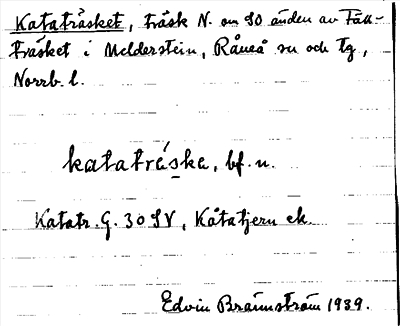 Kataträsket, träsk N. om SO änden av Fäll-
träsket i Melderstein, Råneå sn och tg,
Norrb. l.
kataträske, bf. n.
Katatr. G. 30 SV, Kåtatjern ek.
Edvin Brännström 1939.